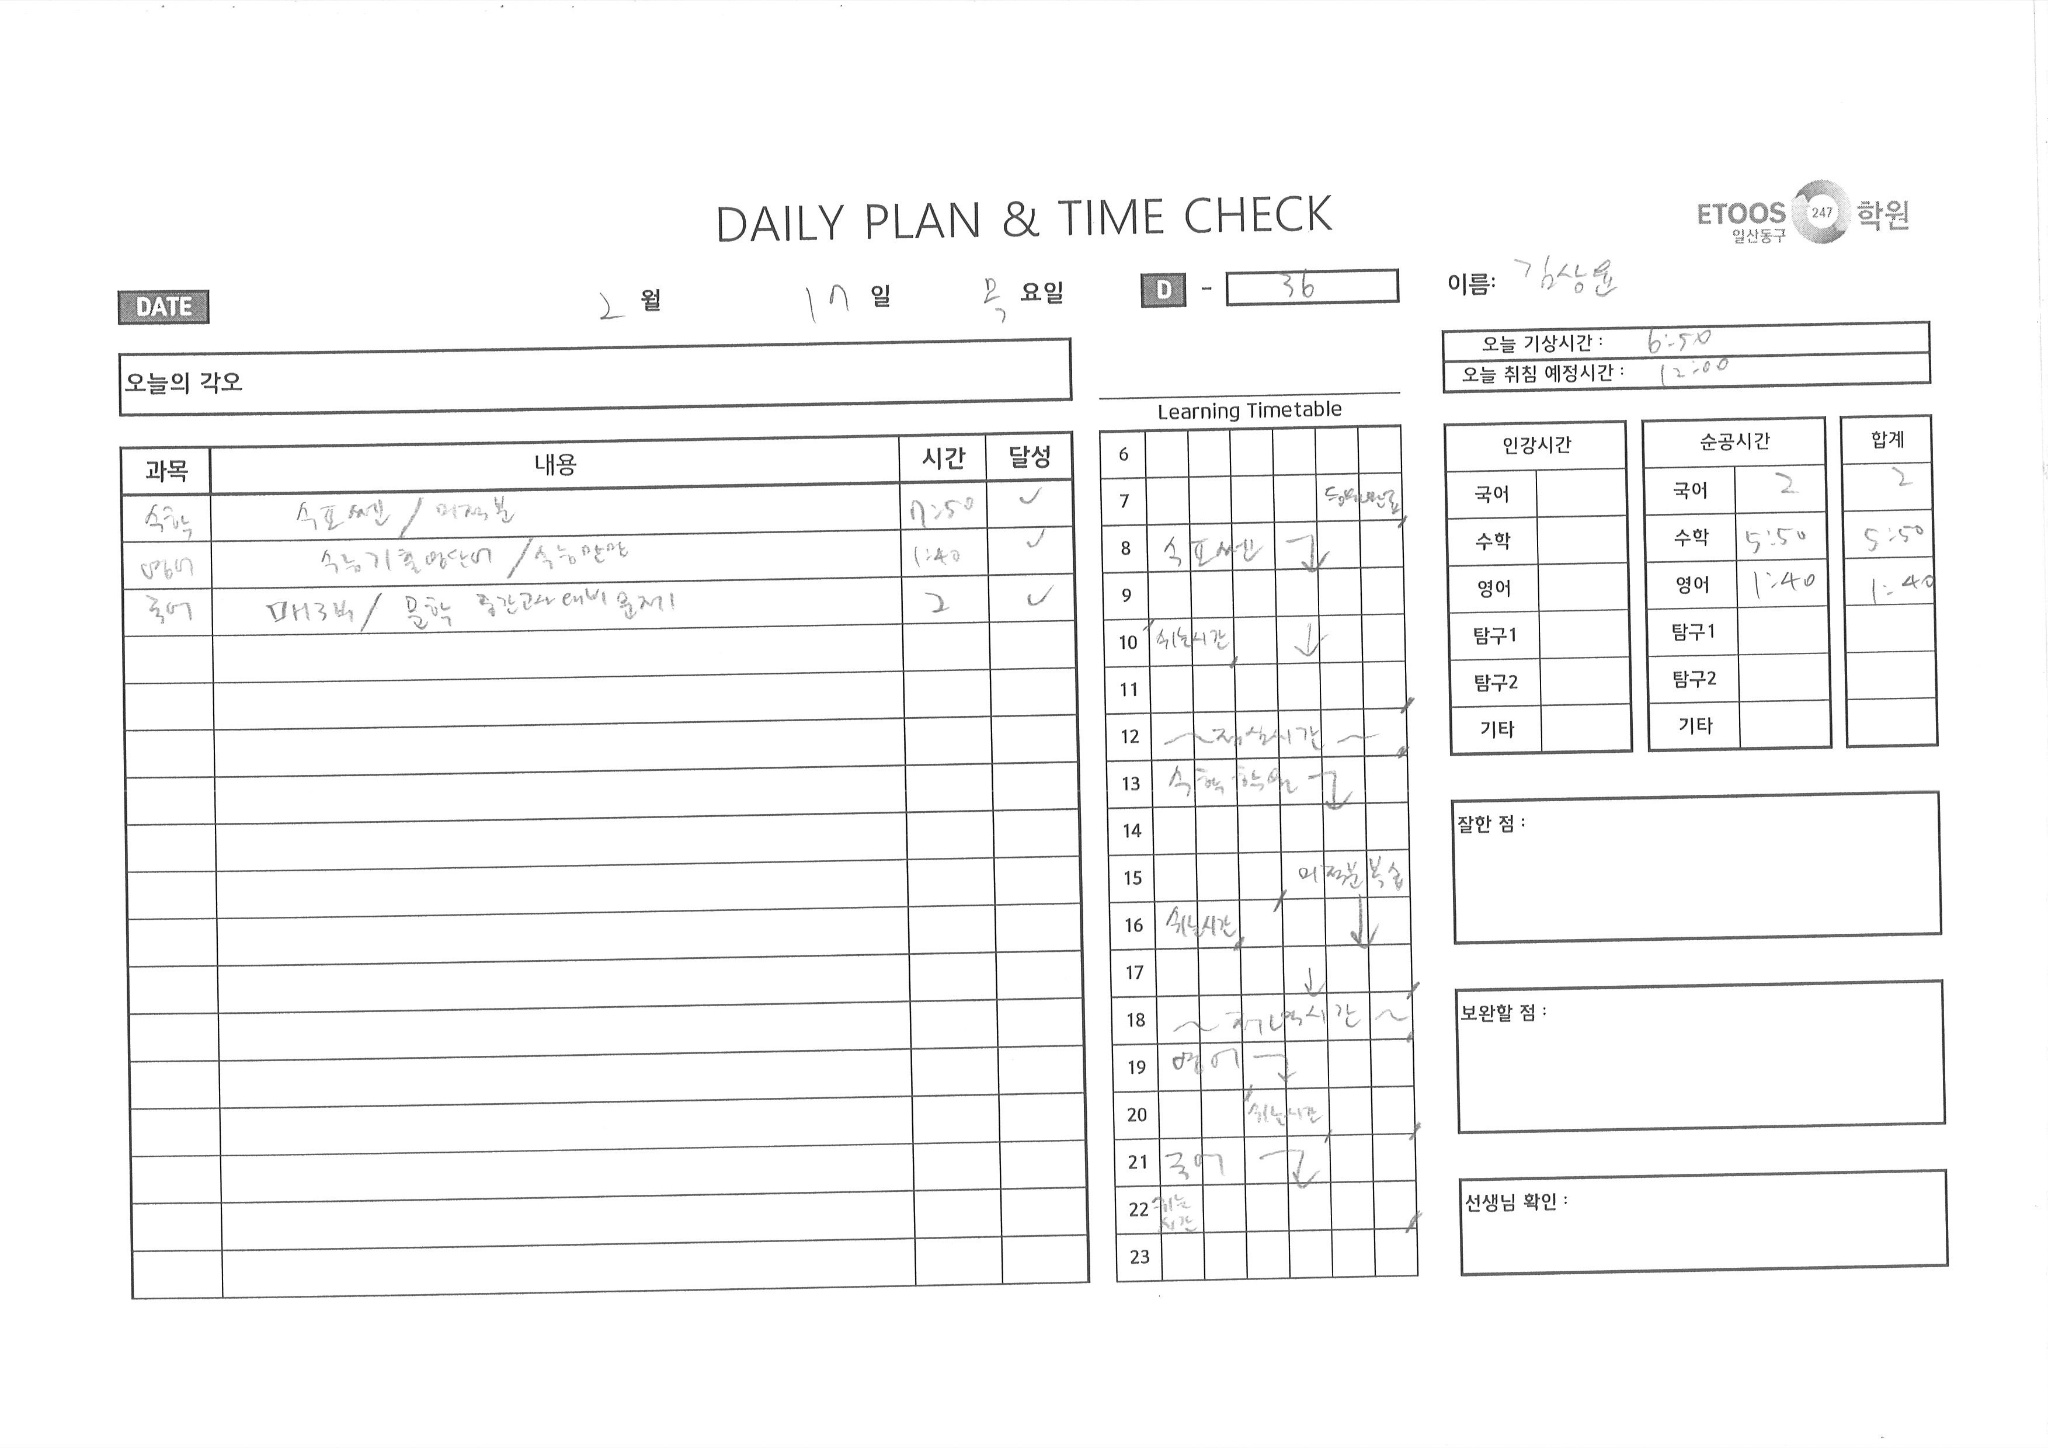 DAILY PLAN & TIME CHECK
ETOOS 247 학원
일산동구
DATE 2 월 17 일 목 요일
D - 36
이름: 김상윤
오늘의 각오
오늘 기상시간 : 6:50
오늘 취침 예정시간 : 12:00
과목 내용 시간 달성
수학 수포쎈 / 미적분 7:50 ✓
영어 수능기출영단어 / 수능만만 1:40 ✓
국어 매3비 / 문학 중간고사대비 문제1 2 ✓
Learning Timetable
6
7 등원완료
8 수포쎈
9
10 쉬는시간 ↓
11
12 ~점심시간~
13 수학학원
14
15 미적분복습
16 쉬는시간 ↓
17 ↓
18 ~저녁시간~
19 영어
20 쉬는시간
21 국어
22 쉬는시간
23
인강시간
국어
수학
영어
탐구1
탐구2
기타
순공시간 합계
국어 2 2
수학 5:50 5:50
영어 1:40 1:40
탐구1
탐구2
기타
잘한 점 :
보완할 점 :
선생님 확인 :